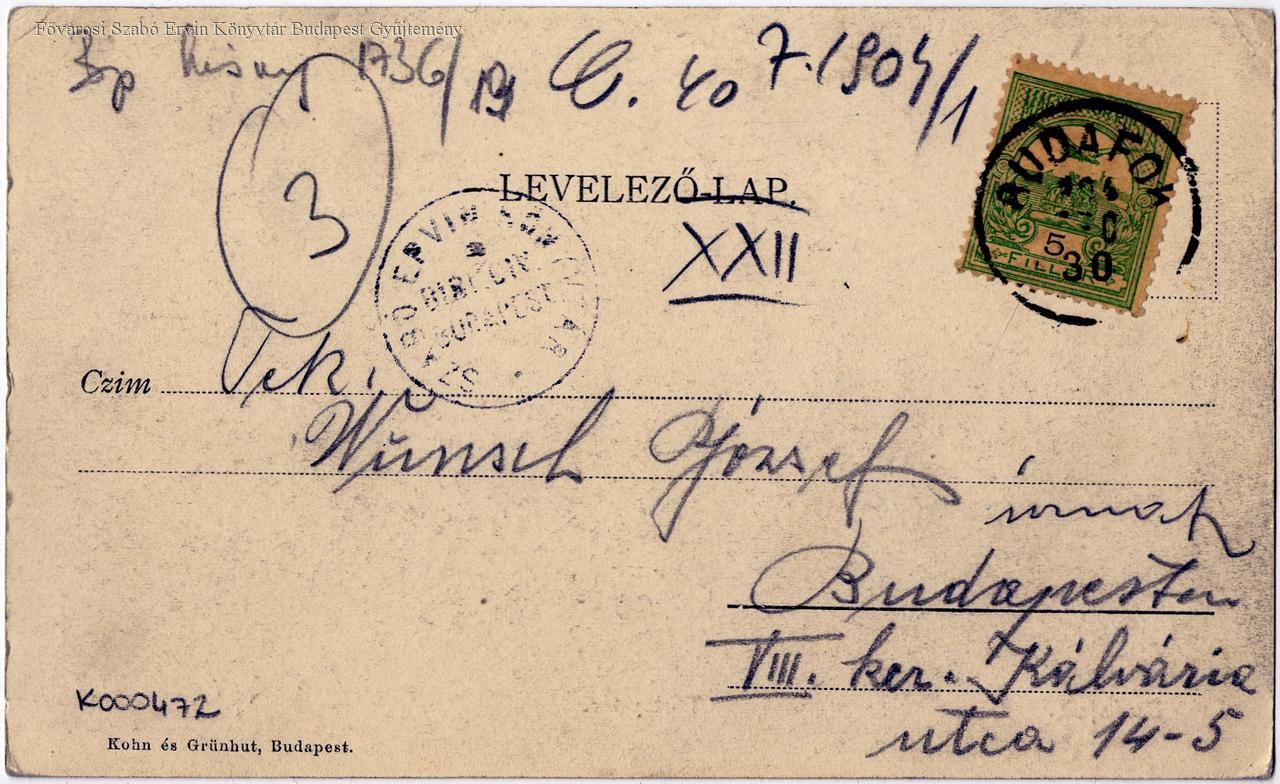 Fővárosi Szabó Ervin Könyvtár Budapest Gyűjtemény
Bp 1736/19 C. 40 7.1904/1
3
LEVELEZŐ-LAP.
XXII
SZABÓ ERVIN KÖNYVTÁR
BUDAPEST
BUDAFOK
5
30
Czim Tek.
Wünsch József
úrnak
Budapesten
VIII. ker. Kálvária
utca 14-5
K000472
Kohn és Grünhut, Budapest.